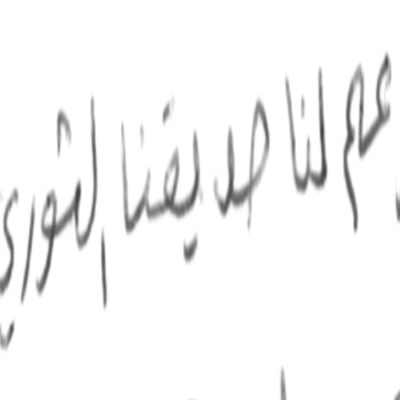 علم لنا صديقنا الثوري